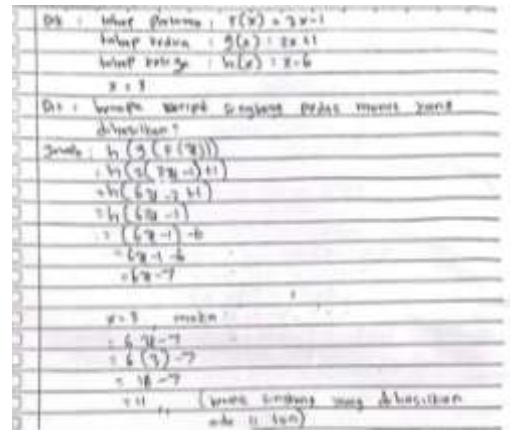 Dik : tahap pertama : f(x) = 3x-1
tahap kedua : g(x) : 2x+1
tahap ketiga : h(x) : x-6
x = 3
Dit : berapa keripik singkong pedas manis yang
dihasilkan?
Jawab : h(g(f(x)))
: h(2(3x-1)+1)
= h(6x-2+1)
= h(6x-1)
= (6x-1)-6
= 6x-1-6
= 6x-7
x = 3 maka
= 6x-7
= 6(3)-7
= 18-7
= 11 singkong yang dihasilkan
ada 11 ton)